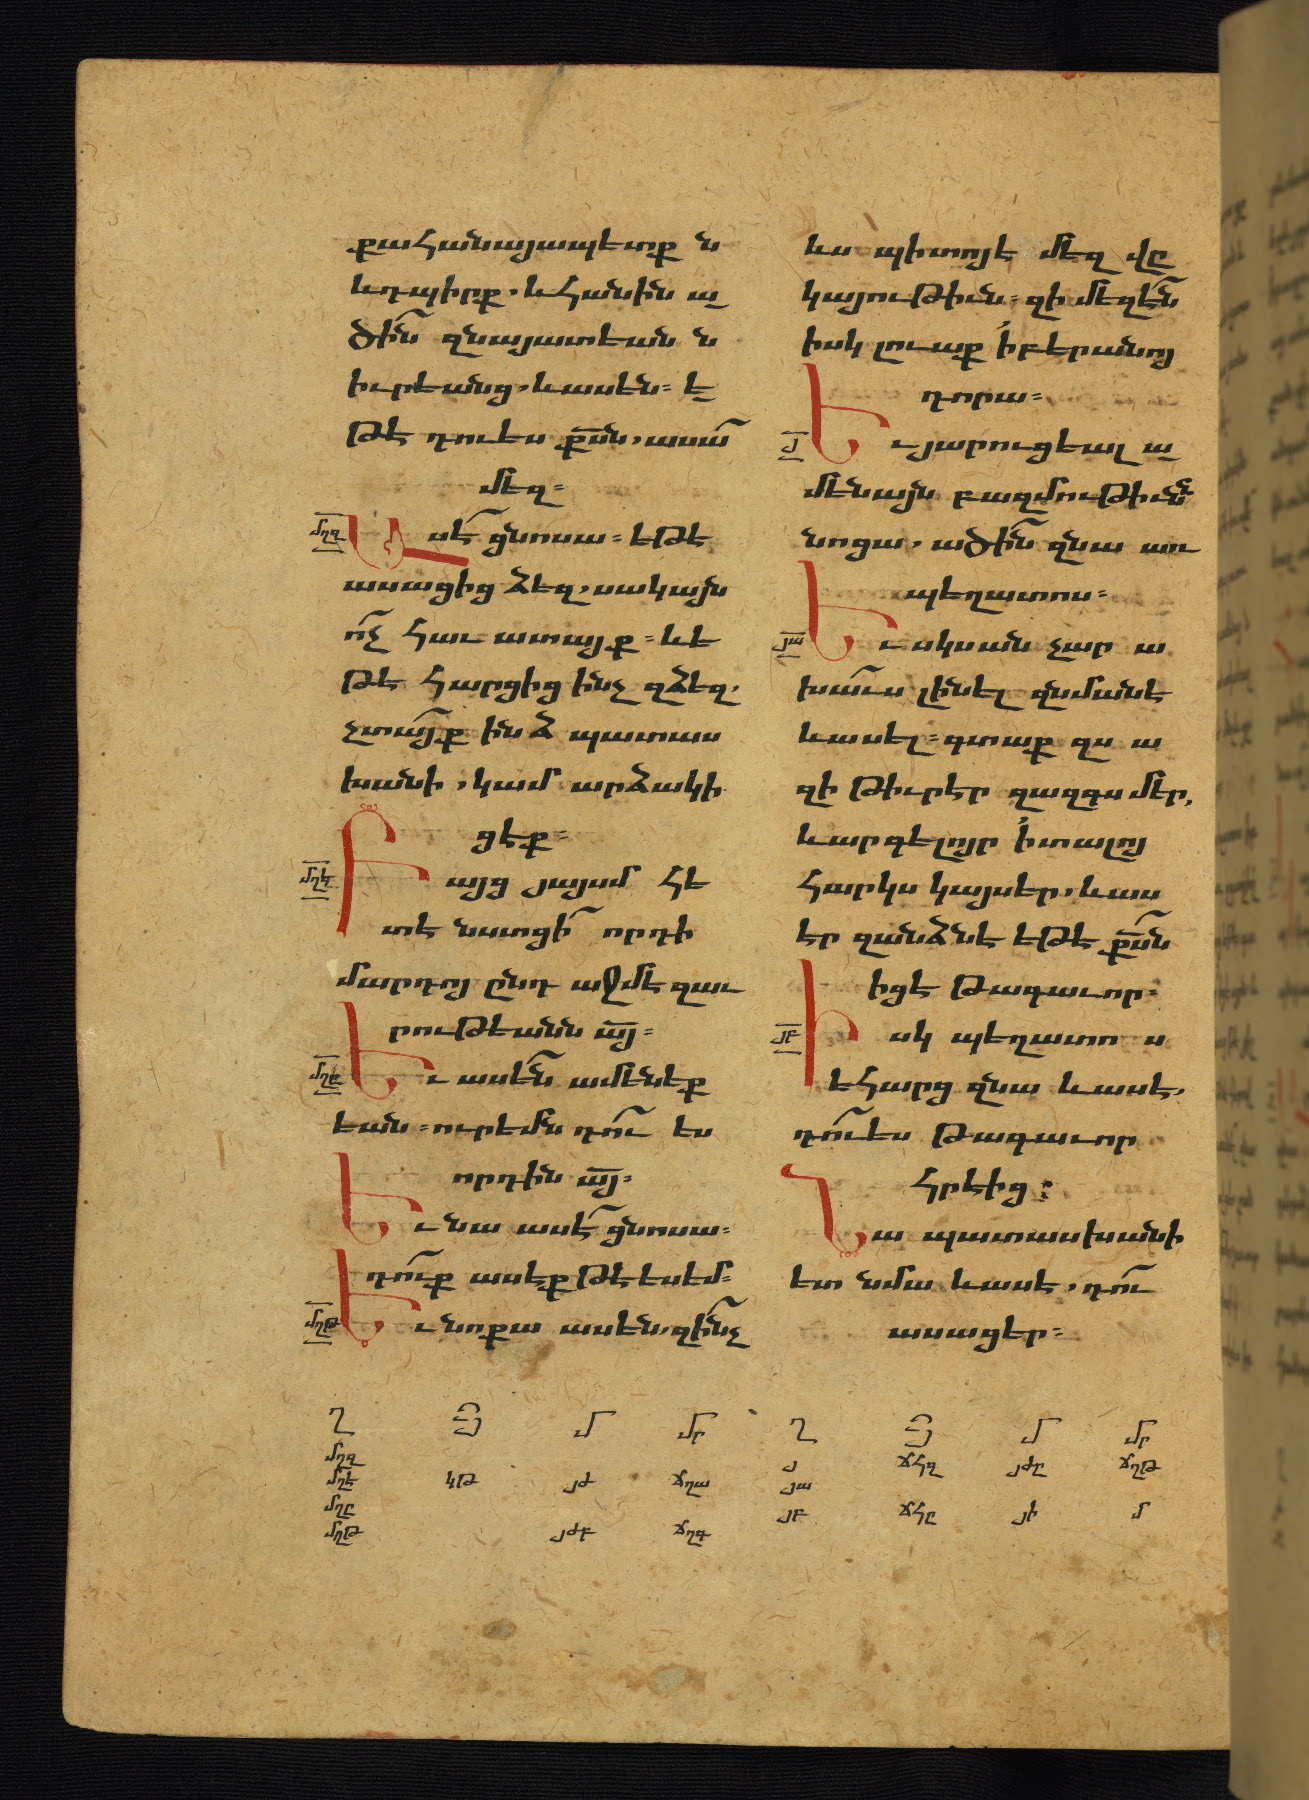 քահանայապետք ն
եւդպիրք, եւհանին ա
ծին զնայատեան ն
իւրեանց, եւասեն՝ է
թէ դուես քսն, ասա
մեզ՝
մղզ Ասէ ցնոսա՝ եթէ
ասացից ձեզ, սակայն
ոչ հաւատայք՝ եւե
թէ հարցից ինչ զձեզ,
չտայք ինձ պատաս
խանի, կամ արձակի
ցէք՝
մղէ Բայց յայսմ հե
տէ նստցի որդի
մարդոյ ընդ աջմէ զաւ
րութեանն այ՝
մղը Եւ ասեն ամենեք
եան՝ ուրեմն դու ես
որդին այ՝
Եւ նա ասէ ցնոսա՝
դուք ասէք թէ եսեմ՝
մղթ Եւ նոքա ասեն, զինչ
եւս պիտոյէ մեզ վը
կայութիւն՝ զի մեզէն
իսկ լուաք ՛ի բերանոյ
դորա՝
յ Եւ յարուցեալ ա
մենայն բազմութիւնն
նոցա, ածին զնա առ
պեղատոս՝
յա Եւ սկսան չար ա
խաւս լինել զնմանէ
եւասել՝ գտաք զս ա
զի թիւրէր զազգս մեր,
եւարգելոյր ՛ի տալոյ
հարկս կայսեր, եւաս
էր զանձնէ եթէ քսն
իցէ թագաւոր՝
յբ Իսկ պեղատոս
եհարց զնա եւասէ,
դուես թագաւոր
հրէից։
Նա պատասխանի
ետ նմա եւասէ, դու
ասացեր՝
Ղ Յ Մ Մր Ղ Յ Մ Մր
մղզ յ ճհզ յժը ճղթ
մղէ կթ յժ ճղա յա
մղը յբ ճհը յի մ
մղթ յժբ ճղգ